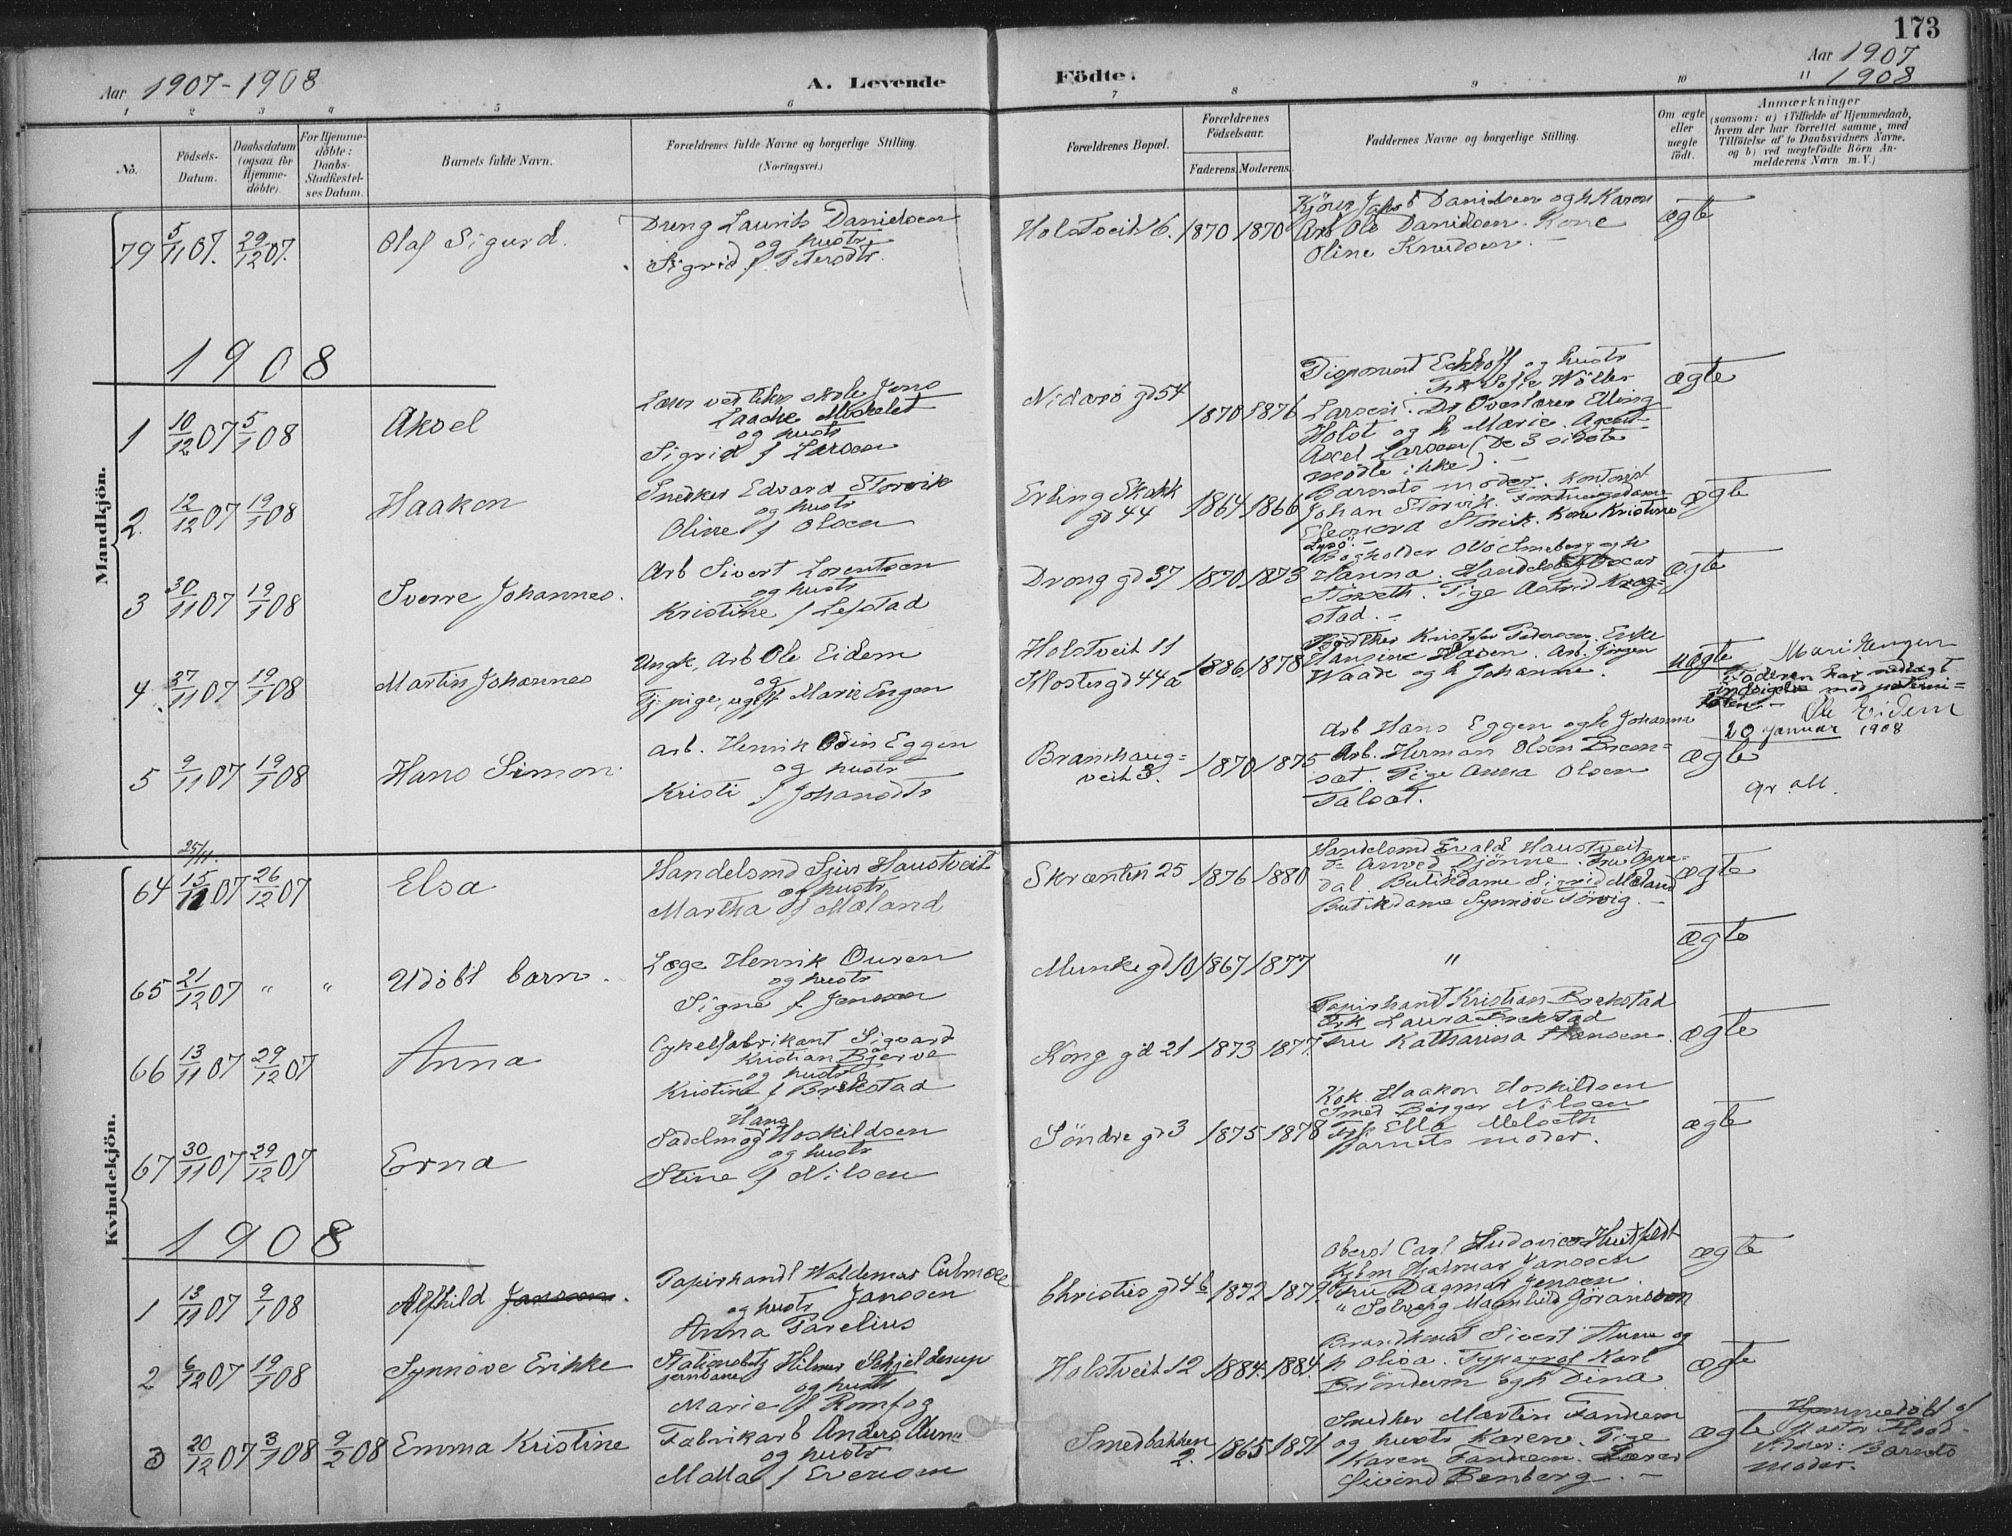 173
Aar 1907-1908
A. Levende Födte.
Aar 1907
1908
1 2 3 4 5 6 7 8 9 10 11
No.
Födsels-Datum.
Daabsdatum (ogsaa for Hjemme-döbte).
For Hjemme-döbte: Daabs-Stadfæstel-ses Datum.
Barnets fulde Navn.
Forældrenes fulde Navne og borgerlige Stilling. (Næringsvei.)
Forældrenes Bopæl.
Forældrenes Födselsaar.
Faderens. Moderens.
Faddernes Navne og borgerlige Stilling.
Om ægte eller uægte födt.
Anmærkninger
(saasom: a) i Tilfælde af Hjemmedaab, hvem der har forrettet samme, med Tilföielse af to Daabsvidners Navne, og b) ved uægtefödte Börn An-melderens Navn m. V.)
Mandkjön.
79 5/11 07. 29/12 07. Olaf Sigurd.
Dreng Laurits Danielsen
og hustr
Sigrid f Petersdtr.
Holstveit 16. 1870 1870
Kjörer Jakob Danielsen og h Karen
Arb Ole Danielsen. Kone
Oline Knudsen. —
ægte
1908
1 10/12 07 5/1 08 Aksel
Lærer ved tekn skole Jens
Laache Moskelet
og hustr
Sigrid f Larsen
Nidarö gd 54 1870 1876
Disponent Eckhoff og hustr
Frk Sofie Möller
Larsen. Dr Overlærer Elling
Holst og h Marie. Agent
Axel Larsen (De 3 sidste
mödte ikke). —
ægte
2. 12/12 07 19/1 08 Haakon
Snedker Edvard Storvik
og hustr
Oline f Olsen
Erling Skakk
gd 44 1864 1866
Barnets moder. Kontorist
Johan Storvik.
Eleonora Storvik. Kone Kristine
ægte
3 30/11 07 19/1 08 Sverre Johannes.
Arb Sivert Lorentsen
og hustr
Kristine f Lefstad
Drong gd 37 1870 1873
Bogholder Olö Smeberg og h
Hanna. Oscar
Störseth. Pige Astrid Krog-
stad. —
ægte
4. 27/11 07 19/1 08 Martin Johannes
Ungk, Arb Ole Eidem
og
Tj. pige, ugift Marie Engen
Holstveit 11
Kloster gd 44a 1886 1878
Kristofer Pedersen. Enke
Hansine Hasen. Arb. Jörgen
Waade og h Johanne.
uægte
Mari Hengen
Faderen har nedlagt
indsigelse mod paterni-
teten. —
Ole Eidem
20 januar 1908
5 9/11 07 19/1 08 Hans Simon.
Arb. Henrik Odin Eggen
og hustr
Kristi f Johansdtr
Bramhaug-
veit 3. 1870 1875
Arb Hans Eggen og h Johanna
Arb. Herman Olsen Brem-
sæt. Pige Anna Olsen
Talsæt.
ægte
gr. att.
Kvindekjön.
25/11.
64 15/11 07 26/12 07 Elsa
Handelsmd Sjur Haustveit
og hustr
Martha f Mæland
Skrænten 25 1876 1880
Handelsmd Evald Haustveit
Arnved Djönne. Fru Oppe-
dal. Butikdame Sigrid Mæland
Butikdame Synnöve Törvig. —
ægte
65 21/12 07 " " Udöbt barn.
Læge Henrik Ouren
og hustr
Signe f Jensen
Munke gd 10 1867 1877
"
ægte
66 13/11 07 29/12 07 Anna
Cykelfabrikant Sigvard
Kristian Bjerve
og hustr
Kristine f Brekstad
Kong gd 21 1873 1877.
Papirhandl Kristian Brekstad
Frk Laura Brekstad
Fru Katharina Hansen.
ægte
67 30/11 07 29/12 07 Erna
Hans
Sadelmag Hoskildsen
og hustr
Stine f Nilsen
Söndre gd 3 1875 1878
Kok Haakon Hoskildsen
Smed Birger Nilsen
Frk Ella Melseth
Barnets moder.
ægte
1908
1 13/11 07 9/1 08 Alfhild Janssen.
Papirhandl Waldemar Culmsee
og hustr Janssen
Anna Parelius
Christies gd 4b 1872 1879.
Oberst Carl Ludovico Huitfeldt
Kjbm Hjalmar Janssen
Fru Dagmar Jensen
" Solveig Magnhild Göransson
ægte
2 6/12 07 19/1 08 Synnöve Erikke
Stationsbetj Hilmar Schjelderup
jernbane
og hustr
Marie f Romfog
Holstveit 12 1884. 1884.
Brandkonst Sivert Aune og
h Olisa. Typograf Karl
Bröndum og h Dina.
ægte
3 20/12 07 3/1 08 9/2 08 Emma Kristine
Fabrikarb Anders Aune
og hustr
Malla f Evensen
Smedbakken
2. 1865 1871
Snedker Martin Fandrem
og hustr Karen. Pige
Karen Fandrem. Lærer
Eivind Benberg. —
ægte
Hjemmedöbt af
Pastor Flood.
Vidner: Barnets
moder.